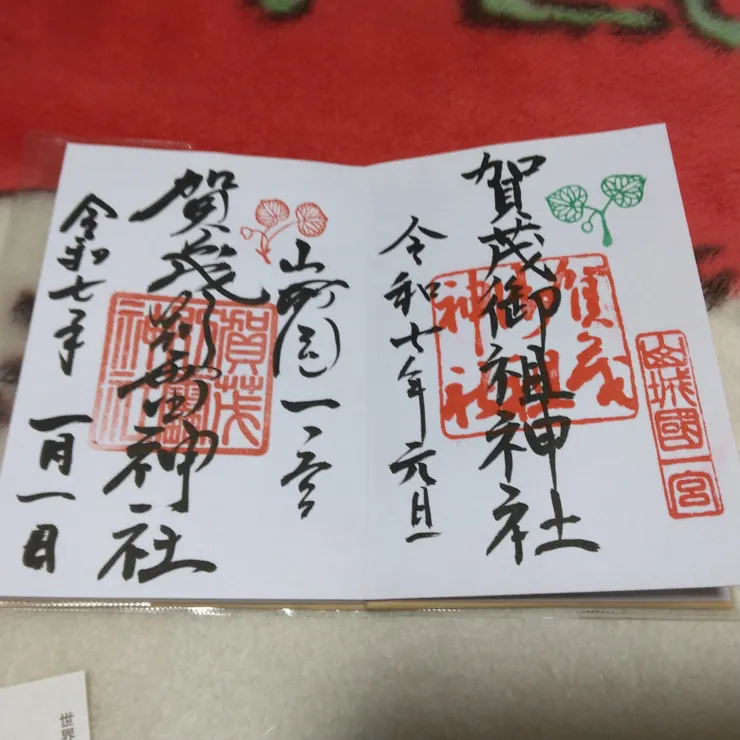 山城國一宮
賀茂御祖神社
賀茂御祖神社
令和七年元旦
山城国一之宮
賀茂別雷神社
賀茂別雷神社
令和七年 一月一日
世界